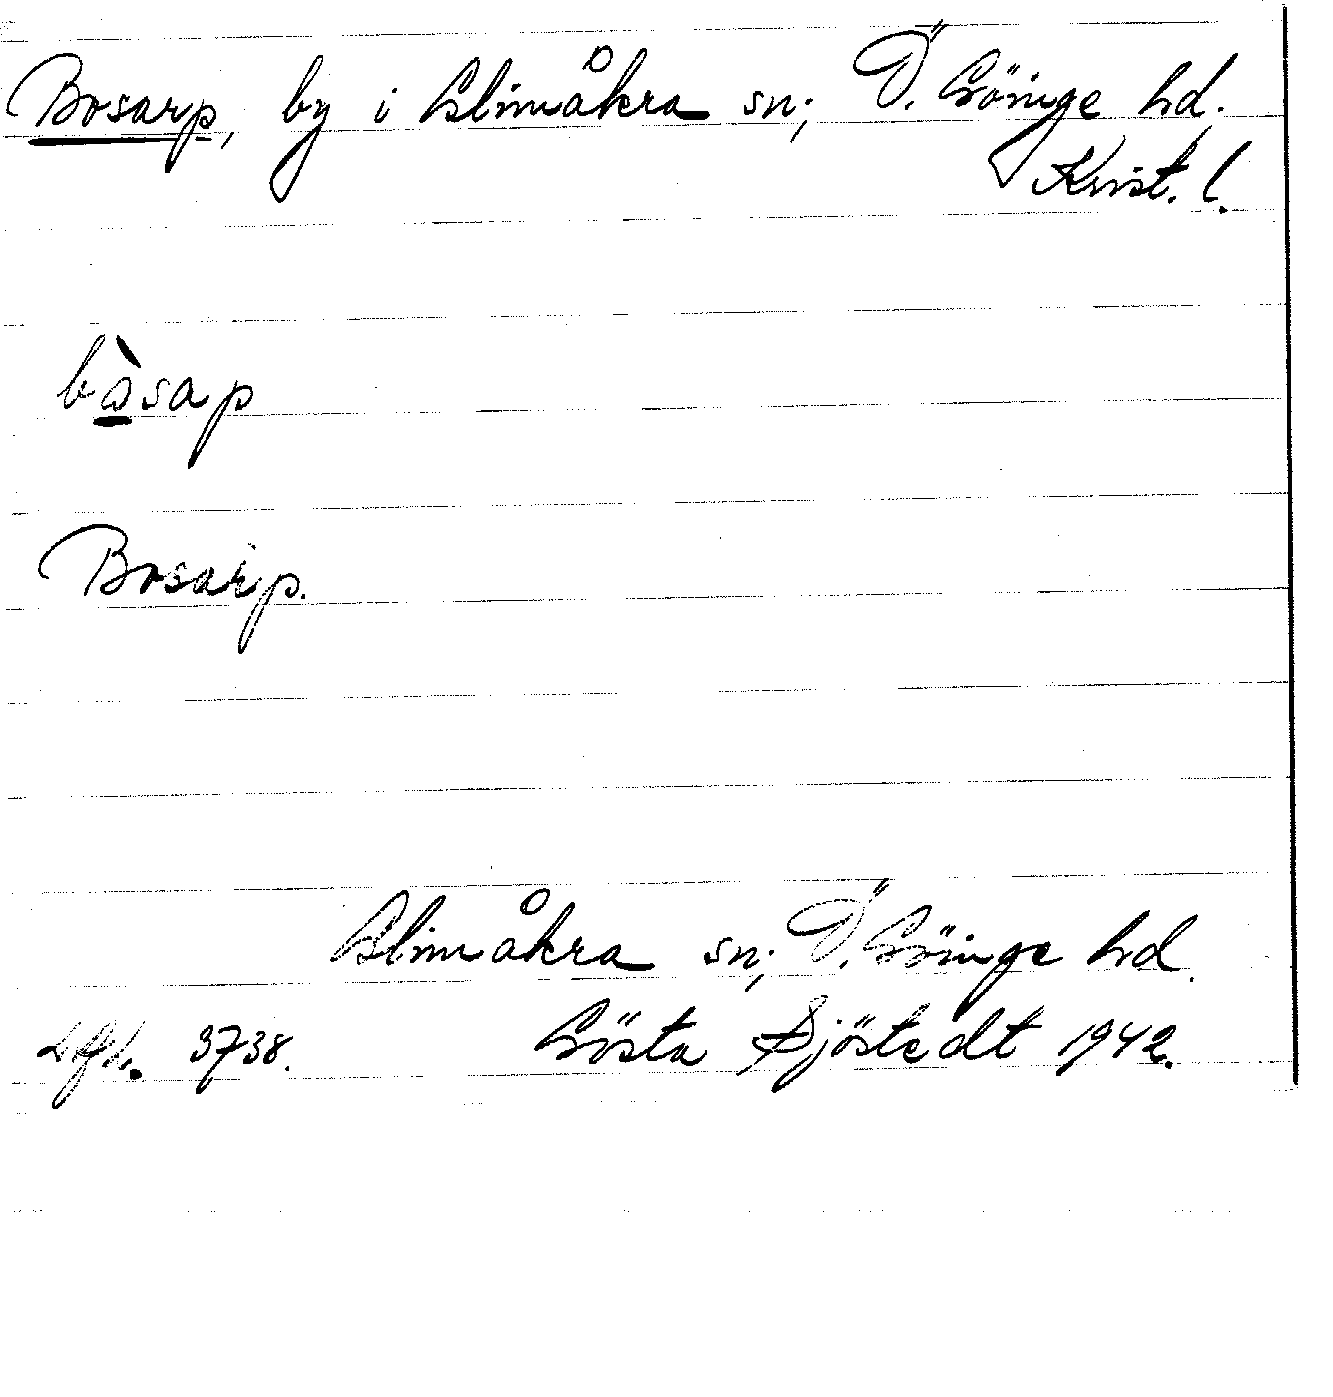 Bosarp, by i Glimåkra sn; Ö. Göinge hd.
Krist. l.
Bosarp.
Glimåkra sn; Ö. Göinge hd.
3738. Gösta Sjöstedt 1942.